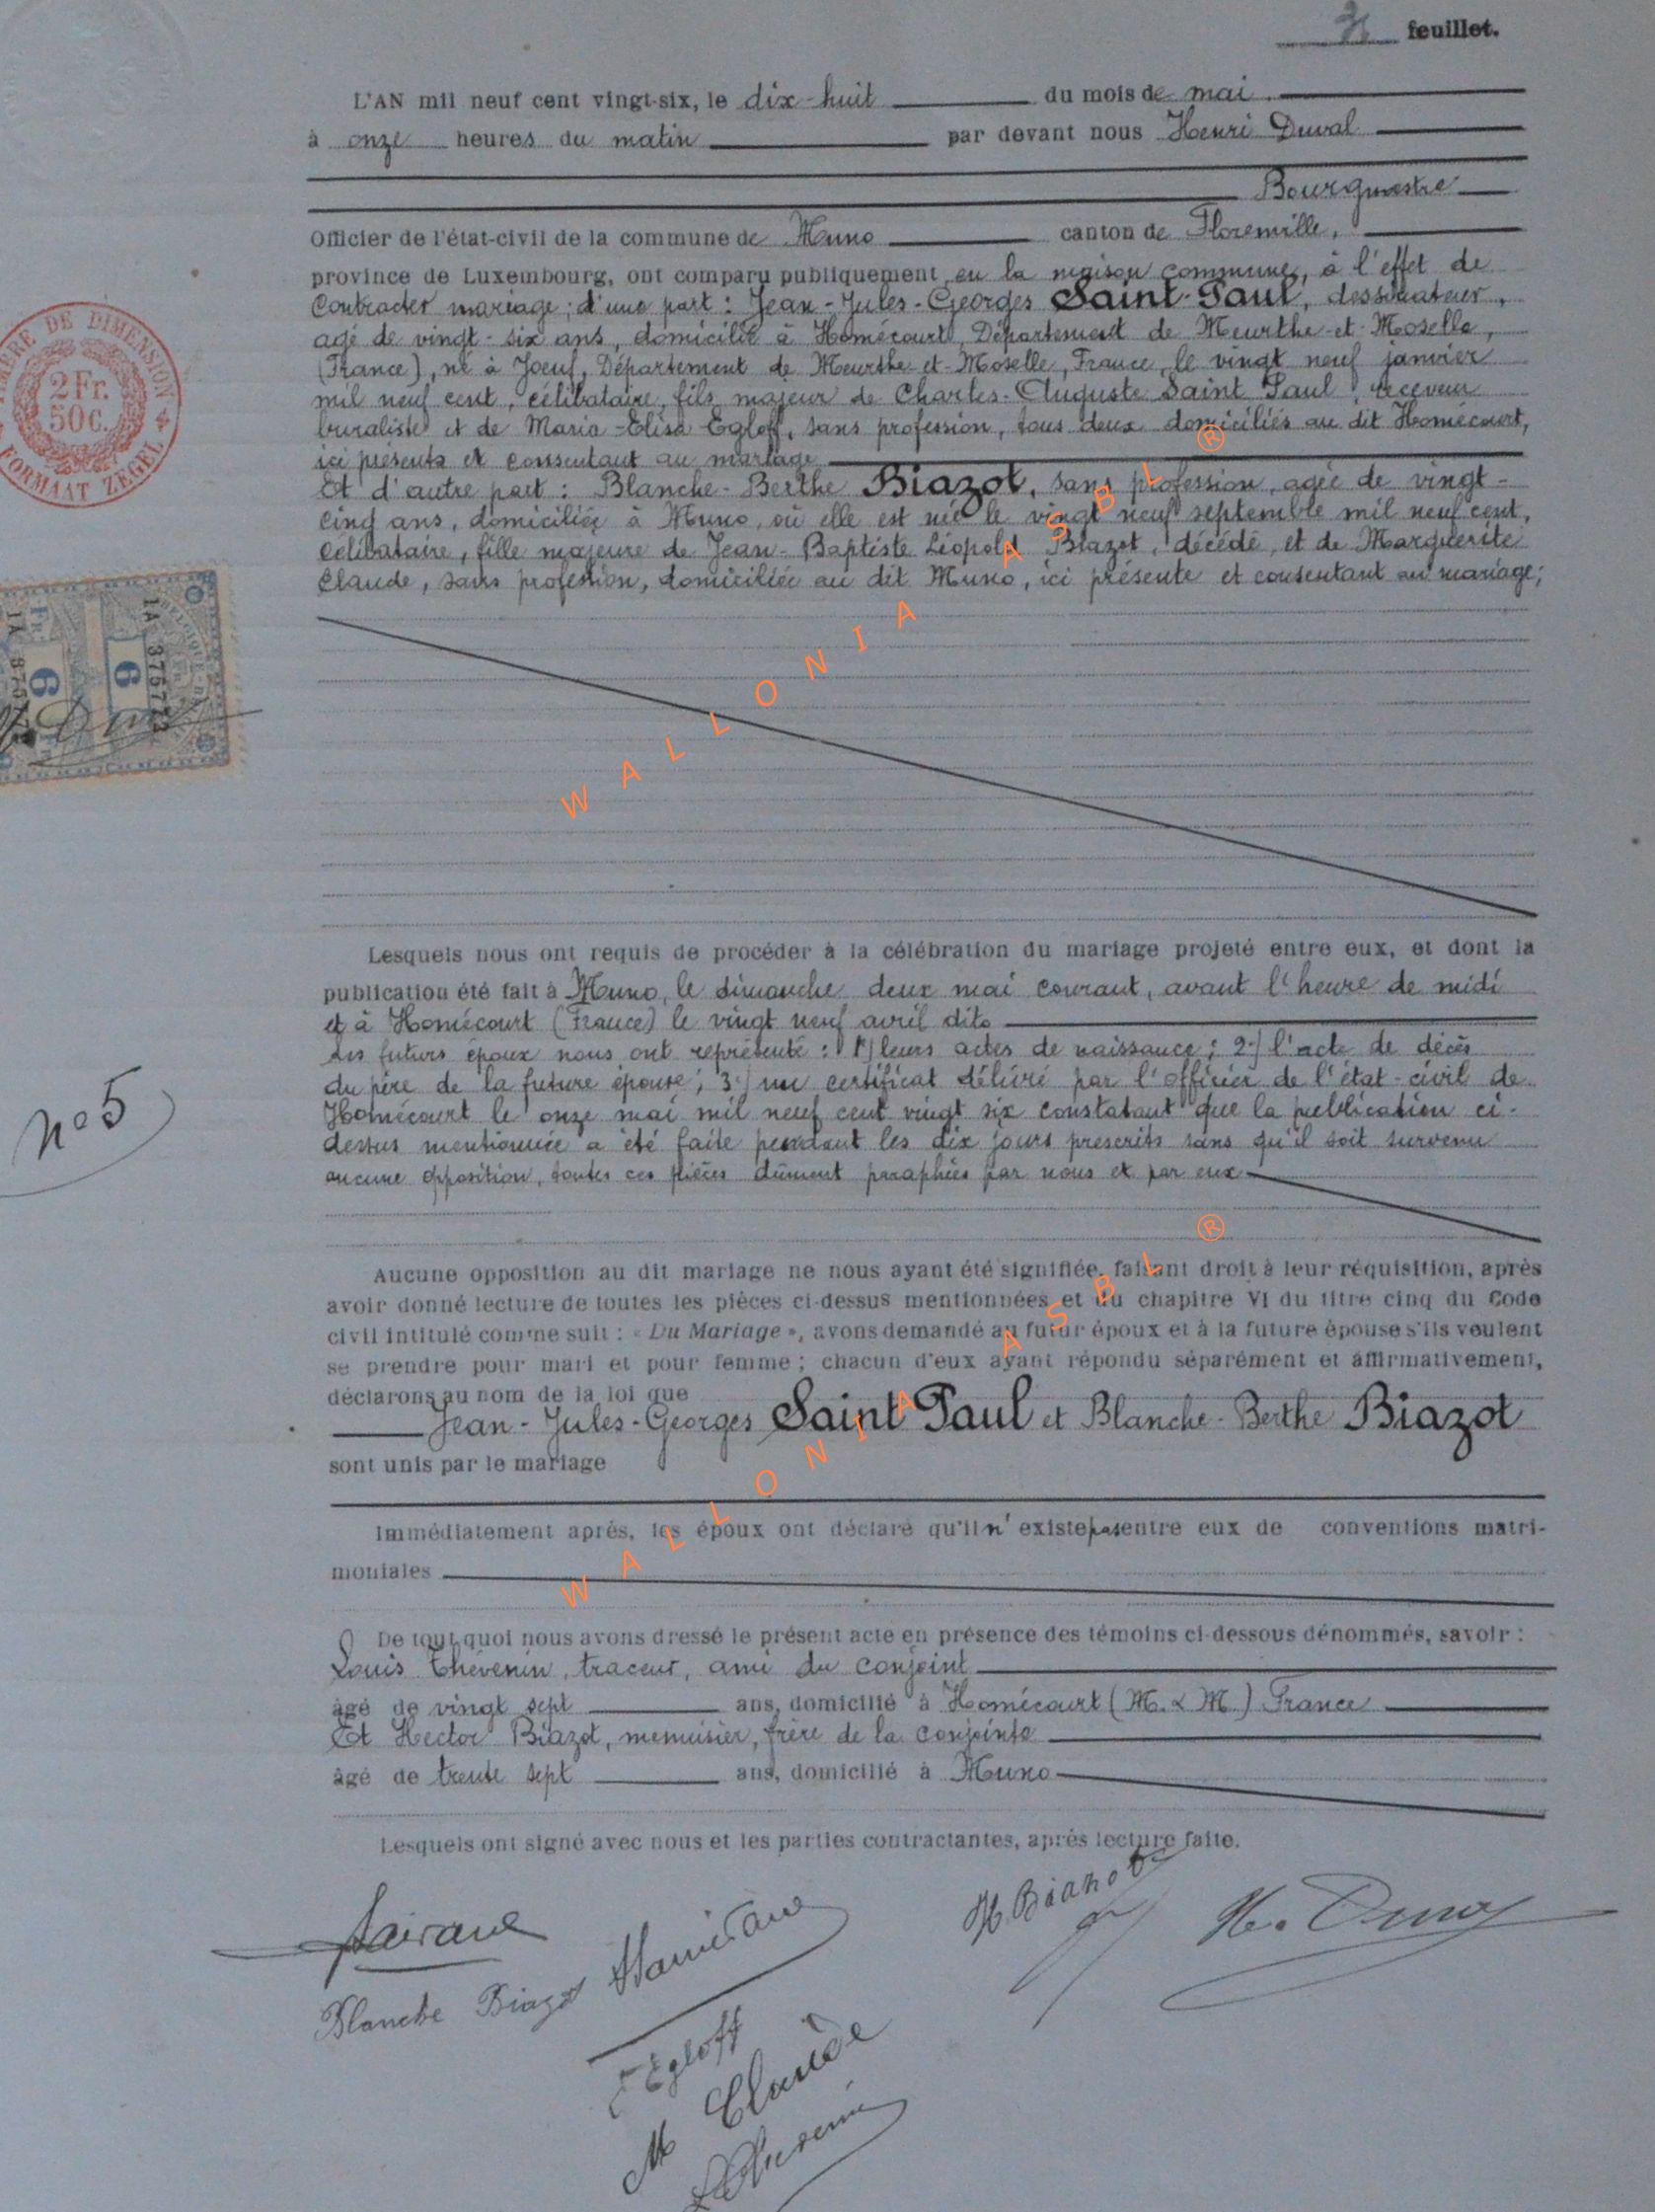 feuillet.
L'AN mil neuf cent vingt-six, le dix-huit du mois de mai
à onze heures du matin par devant nous Henri Duval
Bourgmestre
Officier de l'état-civil de la commune de Muno canton de Florenville,
province de Luxembourg, ont comparu publiquement en la maison commune, à l'effet de
contracter mariage; d'une part : Jean-Jules-Georges Saint-Paul, dessinateur,
agé de vingt-six ans, domicilié à Homécourt, Département de Meurthe-et-Moselle,
(France), né à Joeuf, Département de Meurthe-et-Moselle, France, le vingt neuf janvier
mil neuf cent, célibataire, fils majeur de Charles-Auguste Saint Paul, receveur
buraliste et de Maria-Elisa Egloff, sans profession, tous deux domiciliés au dit Homécourt,
ici présents et consentant au mariage
Et d'autre part : Blanche-Berthe Biazot, sans profession, agée de vingt-
cinq ans, domiciliée à Muno, où elle est née le vingt neuf septembre mil neuf cent,
célibataire, fille majeure de Jean-Baptiste Léopold Biazot, décédé, et de Marguerite
Claude, sans profession, domiciliée au dit Muno, ici présente et consentant au mariage;
Lesquels nous ont requis de procéder à la célébration du mariage projeté entre eux, et dont la
publication été fait à Muno, le dimanche deux mai courant, avant l'heure de midi
et à Homécourt (France) le vingt neuf avril dito
Les futurs époux nous ont représenté : 1°) leurs actes de naissance; 2°) l'acte de décès
du père de la future épouse; 3°) un certificat délivré par l'officier de l'état-civil de
Homécourt le onze mai mil neuf cent vingt six constatant que la publication ci-
dessus mentionnée a été faite pendant les dix jours prescrits sans qu'il soit survenu
aucune opposition, toutes ces pièces dûment paraphées par nous et par eux
n° 5
Aucune opposition au dit mariage ne nous ayant été signifiée, faisant droit à leur réquisition, après
avoir donné lecture de toutes les pièces ci-dessus mentionnées et du chapitre VI du titre cinq du Code
civil intitulé comme suit : « Du Mariage », avons demandé au futur époux et à la future épouse s'ils veulent
se prendre pour mari et pour femme ; chacun d'eux ayant répondu séparément et affirmativement,
déclarons au nom de la loi que
Jean-Jules-Georges Saint Paul et Blanche-Berthe Biazot
sont unis par le mariage
Immédiatement après, les époux ont déclaré qu'il n'existe pas entre eux de conventions matri-
moniales
De tout quoi nous avons dressé le présent acte en présence des témoins ci-dessous dénommés, savoir :
Louis Thévenin, traceur, ami du conjoint
âgé de vingt sept ans, domicilié à Homécourt (M. & M.) France
Et Hector Biazot, menuisier, frère de la conjointe
âgé de trente sept ans, domicilié à Muno
Lesquels ont signé avec nous et les parties contractantes, après lecture faite.
H Biazot
H. Duval
Blanche Biazot
Egloff
M Claude
TIMBRE DE DIMENSION
2 Fr.
50 c.
FORMAAT ZEGEL
6
6
WALLONIA ASBL ®
WALLONIA ASBL ®